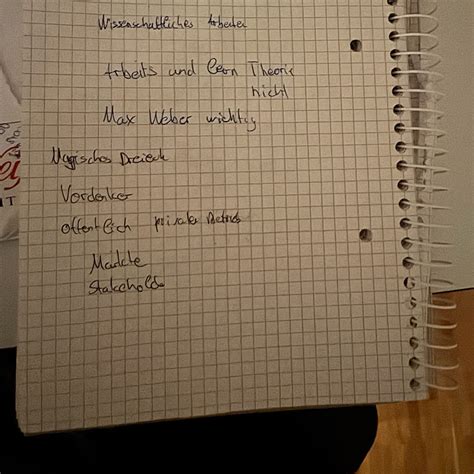 Wissenschaftliches Arbeiten
Arbeits und Lern Theorie
nicht
Max Weber wichtig
Magisches Dreieck
Vordenker
öffentlich privater Betrieb
Mächte
Stakeholder